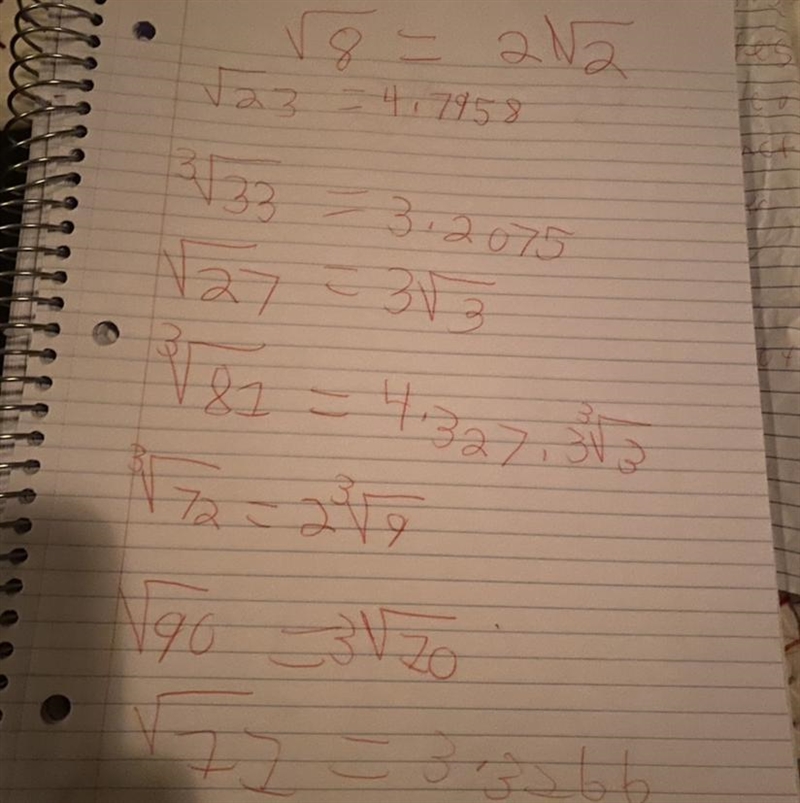 √8 = 2√2
√23 = 4.7958
³√33 = 3.2075
√27 = 3√3
³√81 = 4.327, 3³√3
³√72 = 2³√9
√90 = 3√10
√11 = 3.3166